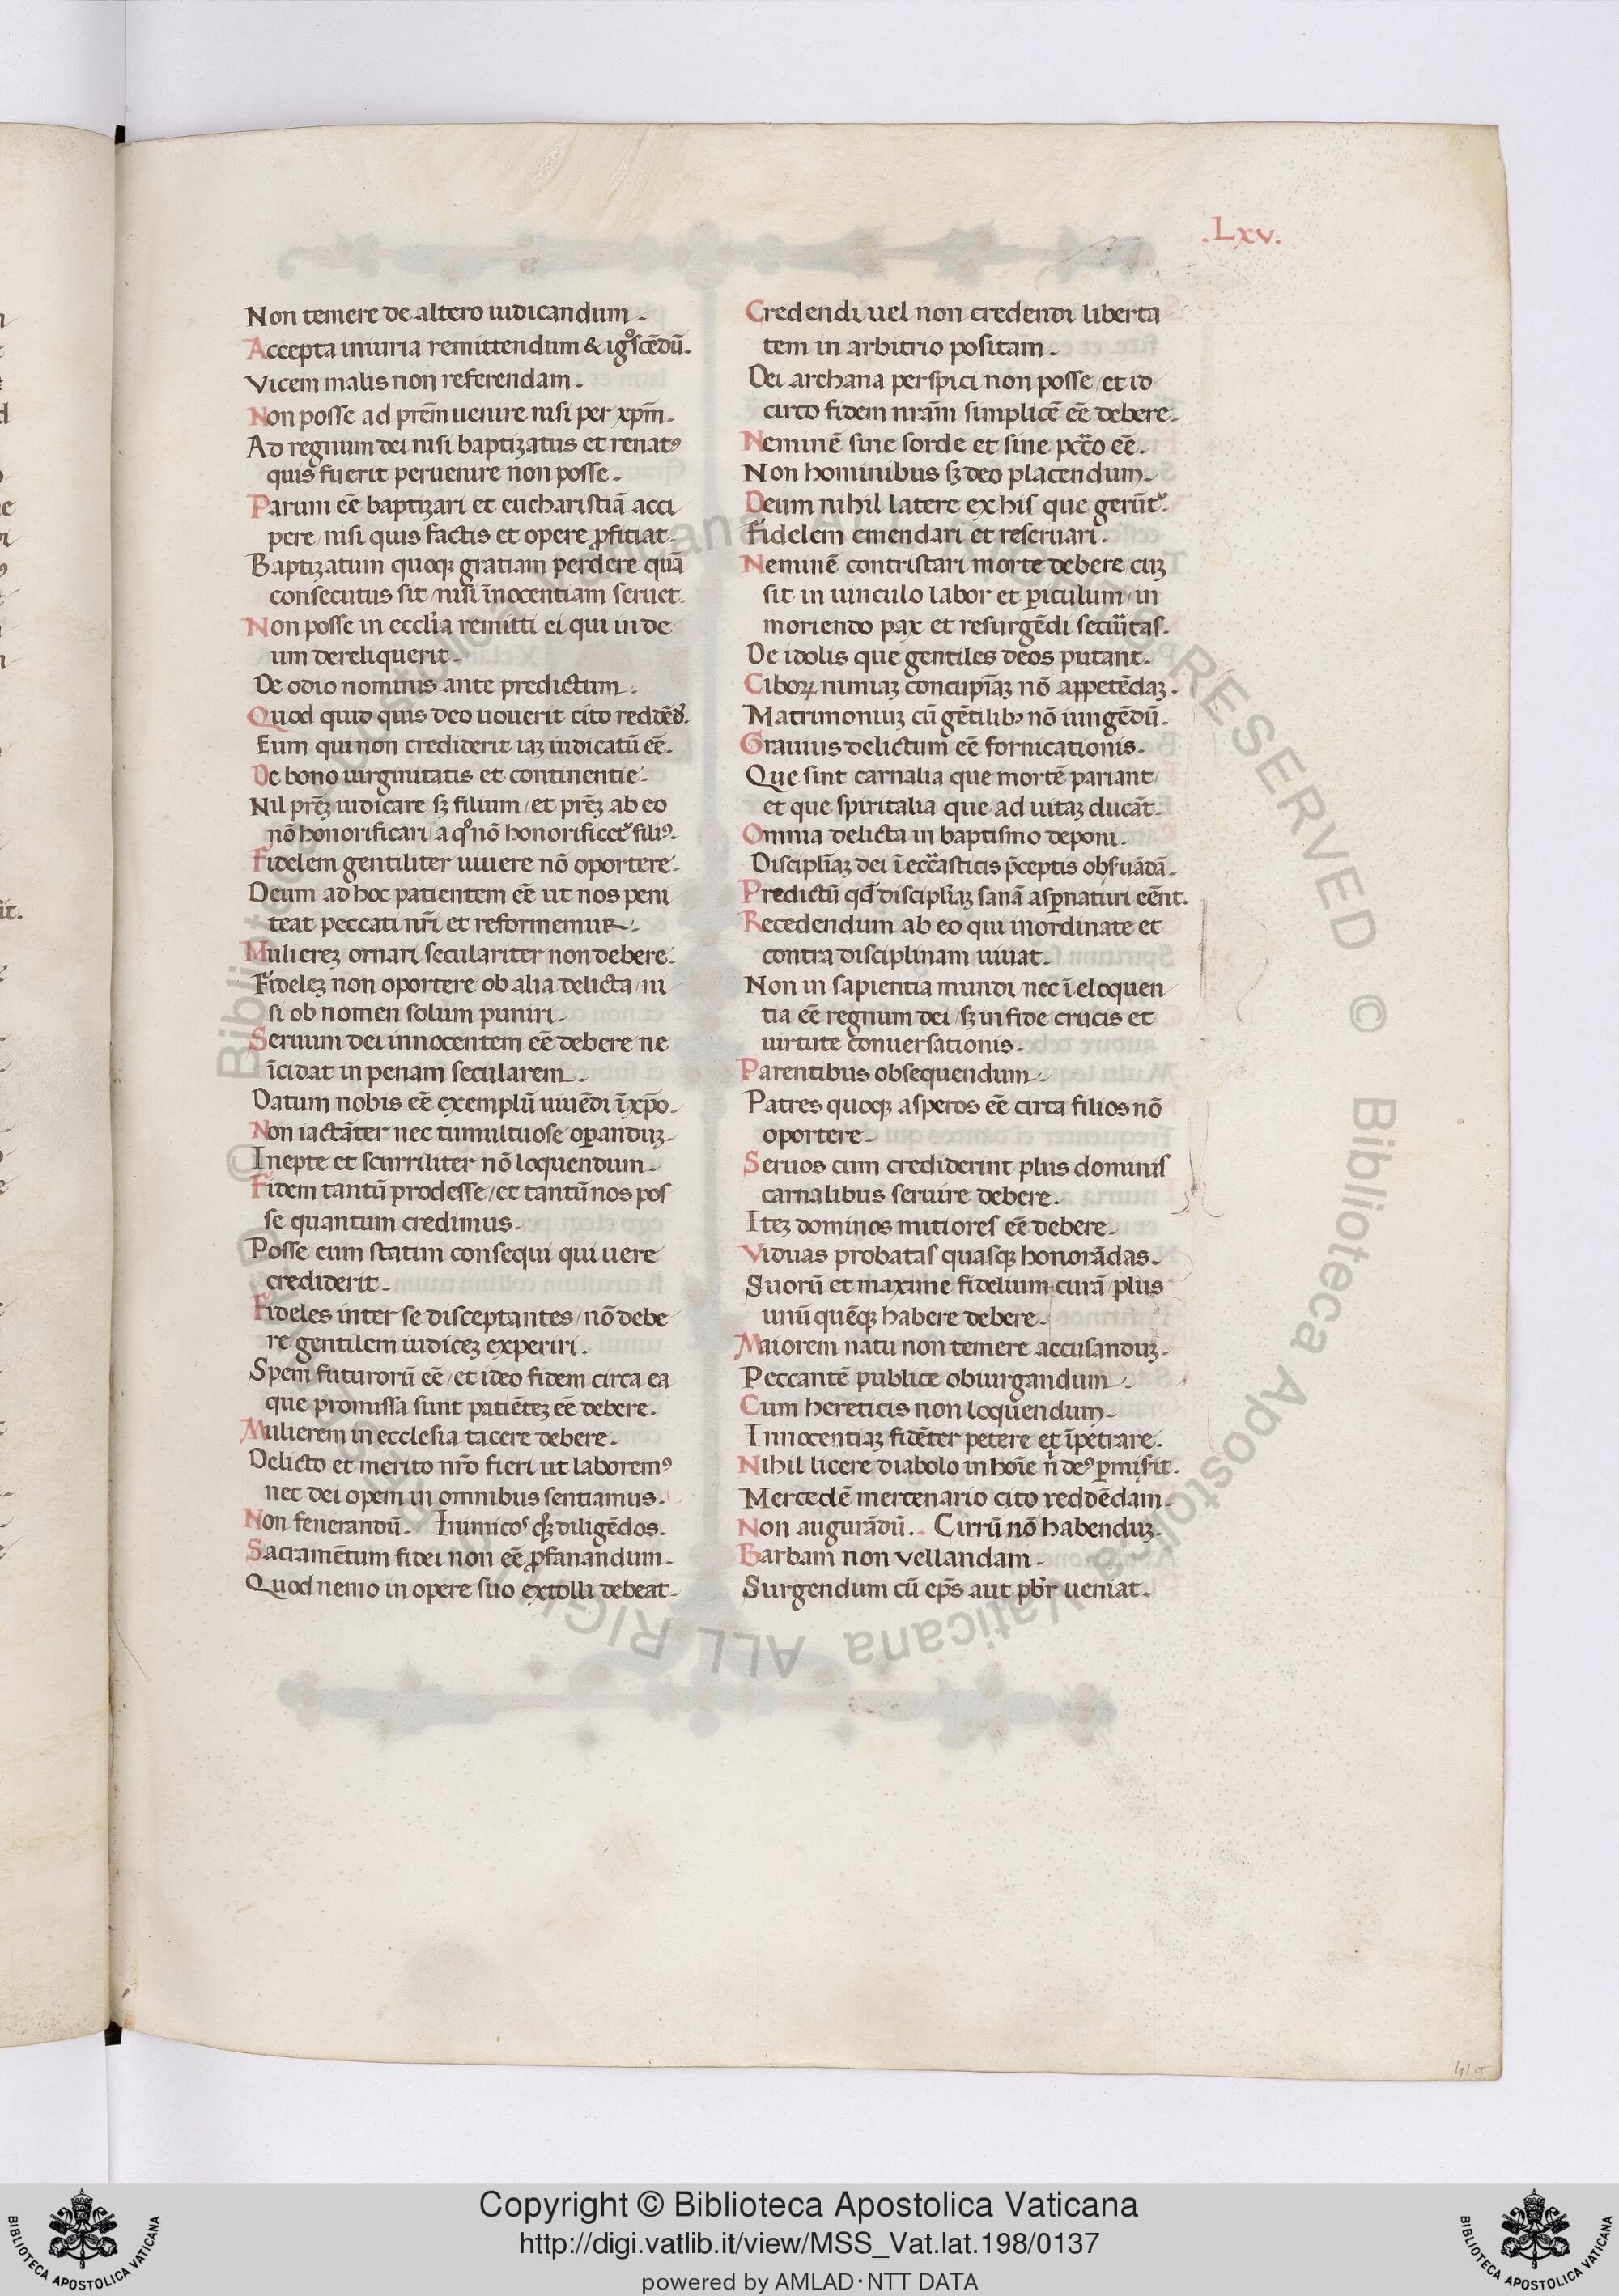 .Lxv.
Non temere de altero iudicandum.
Accepta iniuria remittendum & igͦscēdū.
Vicem malis non referendam.
Non posse ad prēm uenire nisi per xp̄m.
Ad regnum dei nisi baptizatus et renatꝰ
quis fuerit peruenire non posse.
Parum eē baptizari et eucharistiā acci
pere/nisi quis factis et opere ꝓfitiat.
Baptizatum quoqꝫ gratiam perdere quā
consecutus sit/nisi īnocentiam seruet.
Non posse in eccl̄ia remitti ei qui in de
um dereliquerit.
De odio nominis ante predictum.
Quod quid quis deo uouerit cito reddēdꝰ.
Eum qui non crediderit iaꝫ iudicatū eē.
De bono uirginitatis et continentie.
Nil prēꝫ iudicare sꝫ filium/et prēꝫ ab eo
nō honorificari a qͦ nō honorificetᷣ filiꝰ.
Fidelem gentiliter uiuere nō oportere.
Deum ad hoc patientem eē ut nos peni
teat peccati nr̄i et reformemur.
Muliereꝫ ornari seculariter non debere.
Fideleꝫ non oportere ob alia delicta/ni
si ob nomen solum puniri.
Seruum dei innocentem eē debere ne
īcidat in penam secularem.
Datum nobis eē exemplū uiuēdi ī xp̄o.
Non iactāter nec tumultuose oꝑanduꝫ.
Inepte et scurriliter nō loquendum.
Fidem tantū prodesse/et tantū nos pos
se quantum credimus.
Posse eum statim consequi qui uere
crediderit.
Fideles inter se disceptantes/nō debe
re gentilem iudiceꝫ experiri.
Spem futurorū eē/et ideo fidem circa ea
que promissa sunt patiēteꝫ eē debere.
Mulierem in ecclesia tacere debere.
Delicto et merito nr̄o fieri ut laboremꝰ
nec dei opem in omnibus sentiamus.
Non fenerandū. Inimicos qꝫ diligēdos.
Sacramētum fidei non eē ꝓfanandum.
Quod nemo in opere suo extolli debeat.
Credendi uel non credendi liberta
tem in arbitrio positam.
Dei archana perspici non posse/et id
circo fidem nrām simplicē eē debere.
Neminē sine sorde et sine pcc̄to eē.
Non hominibus sꝫ deo placendum.
Deum nihil latere ex his que gerūtᷣ.
Fidelem emendari et reseruari.
Neminē contristari morte debere cuꝫ
sit in uinculo labor et ꝑiculum/in
moriendo pax et resurgēdi secu᷑itas.
De idolis que gentiles deos putant.
Ciboꝝ nimiaꝫ concupīaꝫ nō appetēdaꝫ.
Matrimoniuꝫ cū gētilibꝫ nō iungēdū.
Grauius delictum eē fornicationis.
Que sint carnalia que mortē pariant/
et que spiritalia que ad uitaꝫ ducāt.
Omnia delicta in baptismo deponi.
Disciplīaꝫ dei ī ecc̄asticis p̄ceptis obẜuādā.
Predictū qđ disciplīaꝫ sanā asꝑnaturi eēnt.
Recedendum ab eo qui inordinate et
contra disciplinam uiuat.
Non in sapientia mundi nec ī eloquen
tia eē regnum dei/sꝫ in fide crucis et
uirtute conuersationis.
Parentibus obsequendum.
Patres quoqꝫ asperos eē circa filios nō
oportere.
Seruos cum crediderint plus dominis
carnalibus seruire debere.
Iteꝫ dominos mitiores eē debere.
Viduas probatas quasqꝫ honorādas.
Suorū et maxime fidelium curā/plus
unū quēqꝫ habere debere.
Maiorem natu non temere accusanduꝫ.
Peccantē publice obiurgandum.
Cum hereticis non loquendum.
Innocentiaꝫ fidēter petere et īpetrare.
Nihil licere diabolo in hoīe n̄ deꝰ ꝑmiẜit.
Mercedē mercenario cito reddēdam.
Non augurādū. Cirrū nō habenduꝫ.
Barbam non vellandam.
Surgendum cū ep̄s aut pb̄r ueniat.
Copyright © Biblioteca Apostolica Vaticana
http://digi.vatlib.it/view/MSS_Vat.lat.198/0137
powered by AMLAD·NTT DATA